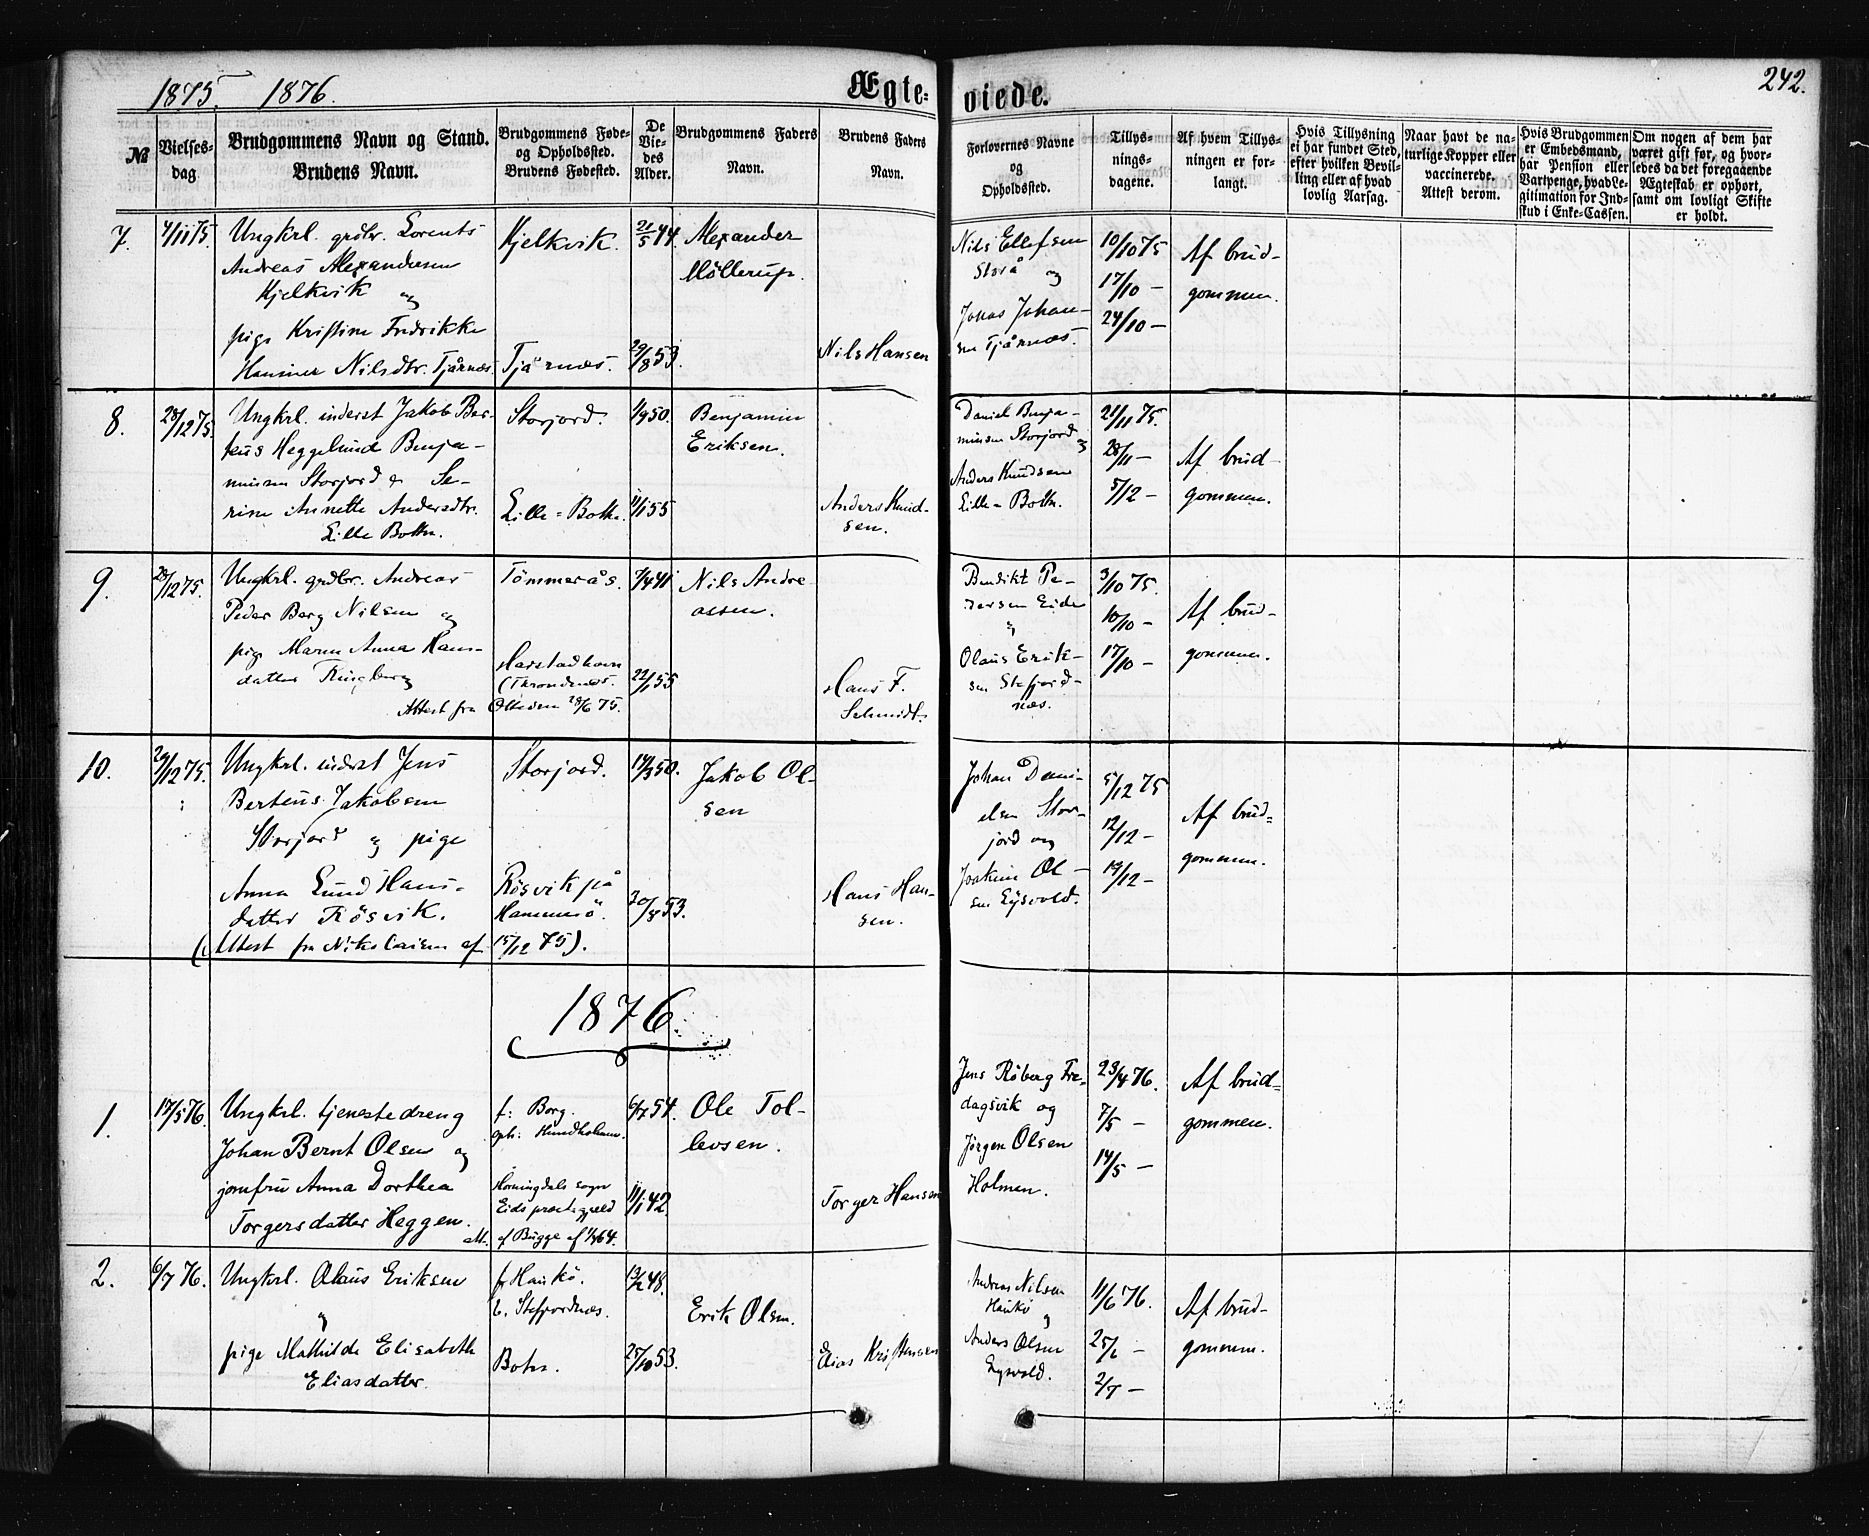 1875. 1876.
Ægte-
viede.
242.
№
Vielses-
dag.
Brudgommens Navn og Stand.
Brudens Navn.
Brudgommens Føde-
og Opholdssted.
Brudens Fødested.
De
Vie-
des
Alder.
Brudgommens Faders
Navn.
Brudens Faders
Navn.
Forlovernes Navne
og
Opholdssted.
Tillys-
nings-
dagene.
Af hvem Tillys-
ningen er for-
langt.
Hvis Tillysning
ei har fundet Sted,
efter hvilken Bevil-
ling eller af hvad
lovlig Aarsag.
Naar havt de na-
turlige Kopper eller
vaccinerede.
Attest derom.
Hvis Brudgommen
er Embedsmand,
har Pension eller
Vartpenge, hvad Le-
gitimation for Ind-
skud i Enke-Cassen.
Om nogen af dem har
været gift før, og hvor-
ledes da det foregaaende
Ægteskab er ophørt,
samt om lovligt Skifte
er holdt.
7.
4/11 75.
Ungkrl. grdbr. Lorents
Andreas Alexandersen
Kjelkvik og
pige Kristine Fredrikke
Hansine Nilsdtr. Tjårnæs.
Kjelkvik.
Tjårnæs.
21/5 44.
29/8 53.
Alexander
Möllerup.
Nils Hansen
Nils Ellefsen
Storå og
Jonas Johan-
sen Tjårnæs.
10/10 75
17/10 –
24/10 –
Af brud-
gommen.
8.
28/12 75.
Ungkrl. inderst Jakob Ber-
teus Heggelund Benja-
minsen Storjord & Se-
rine Annette Andersdtr.
Lille Botn.
Storjord.
Lille-Botn.
1/9 50.
11/1 55
Benjamin
Eriksen.
Anders Knud-
sen.
Daniel Benja-
minsen Storjord
og
Anders Knudsen
Lille-Botn.
21/11 75.
28/11 –
5/12 –
Af brud-
gommen.
9.
28/12 75.
Ungkrl. grdbr. Andreas
Peder Berg Nilsen og
pige Maren Anna Hans-
datter Ringberg
Attest fra
Tömmerås.
Harstadhavn
(Throndenæs.
28/6 75.
7/4 41
22/1 55
Nils Andre-
assen.
Hans F.
Schmidt.
Bendikt Pe-
dersen Eide
og
Olaus Erik-
sen Stefjord-
næs.
3/10 75.
10/10 –
17/10 –
Af brud-
gommen.
10.
29/12 75.
Ungkrl. inderst Jens
Berteus Jakobsen
Storjord og pige
Anna Lund Hans-
datter Rösvik.
(Attest fra Nikolaisen af 15/12 75).
Storjord.
Rösvik på
Hammerö.
14/3 50.
20/8 53.
Jakob Ol-
sen
Hans Han-
sen.
Johan Dani-
elsen Stor-
jord og
Joakim Ol-
sen Eysvold.
5/12 75
12/12 –
19/12 –
Af brud-
gommen.
1876.
1.
17/5 76.
Ungkrl. tjenestedreng
Johan Bernt Olsen og
jomfru Anna Dorthea
Torgersdatter Heggen.
att.
f: Borg.
oph: Hundholmen.
Horningdals sogn
Eids præstegjeld
af Bugge af 1/7 64.
6/7 54.
11/1 42.
Ole Tol-
levsen.
Torger Hansen
Jens Röberg Fre-
dagsvik og
Jörgen Olsen
Holmen.
23/4 76.
7/5 –
14/5 –
Af brud-
gommen.
2.
6/7 76.
Ungkrl. Olaus Eriksen
og
pige Mathilde Elisabeth
Eliasdatter.
f. Haukö.
b. Stefjordnæs.
Botn.
13/2 48.
25/10 53.
Erik Olsen.
Elias Kristensen
Andreas Nilsen
Haukö
og
Anders Olsen
Eysvold.
11/6 76.
25/6 –
2/7 –
Af brud-
gommen.